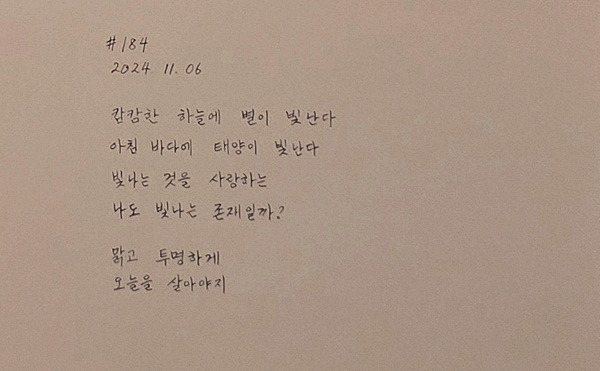 #184
2024. 11. 06
캄캄한 하늘에 별이 빛난다
아침 바다에 태양이 빛난다
빛나는 것을 사랑하는
나도 빛나는 존재일까?
맑고 투명하게
오늘을 살아야지